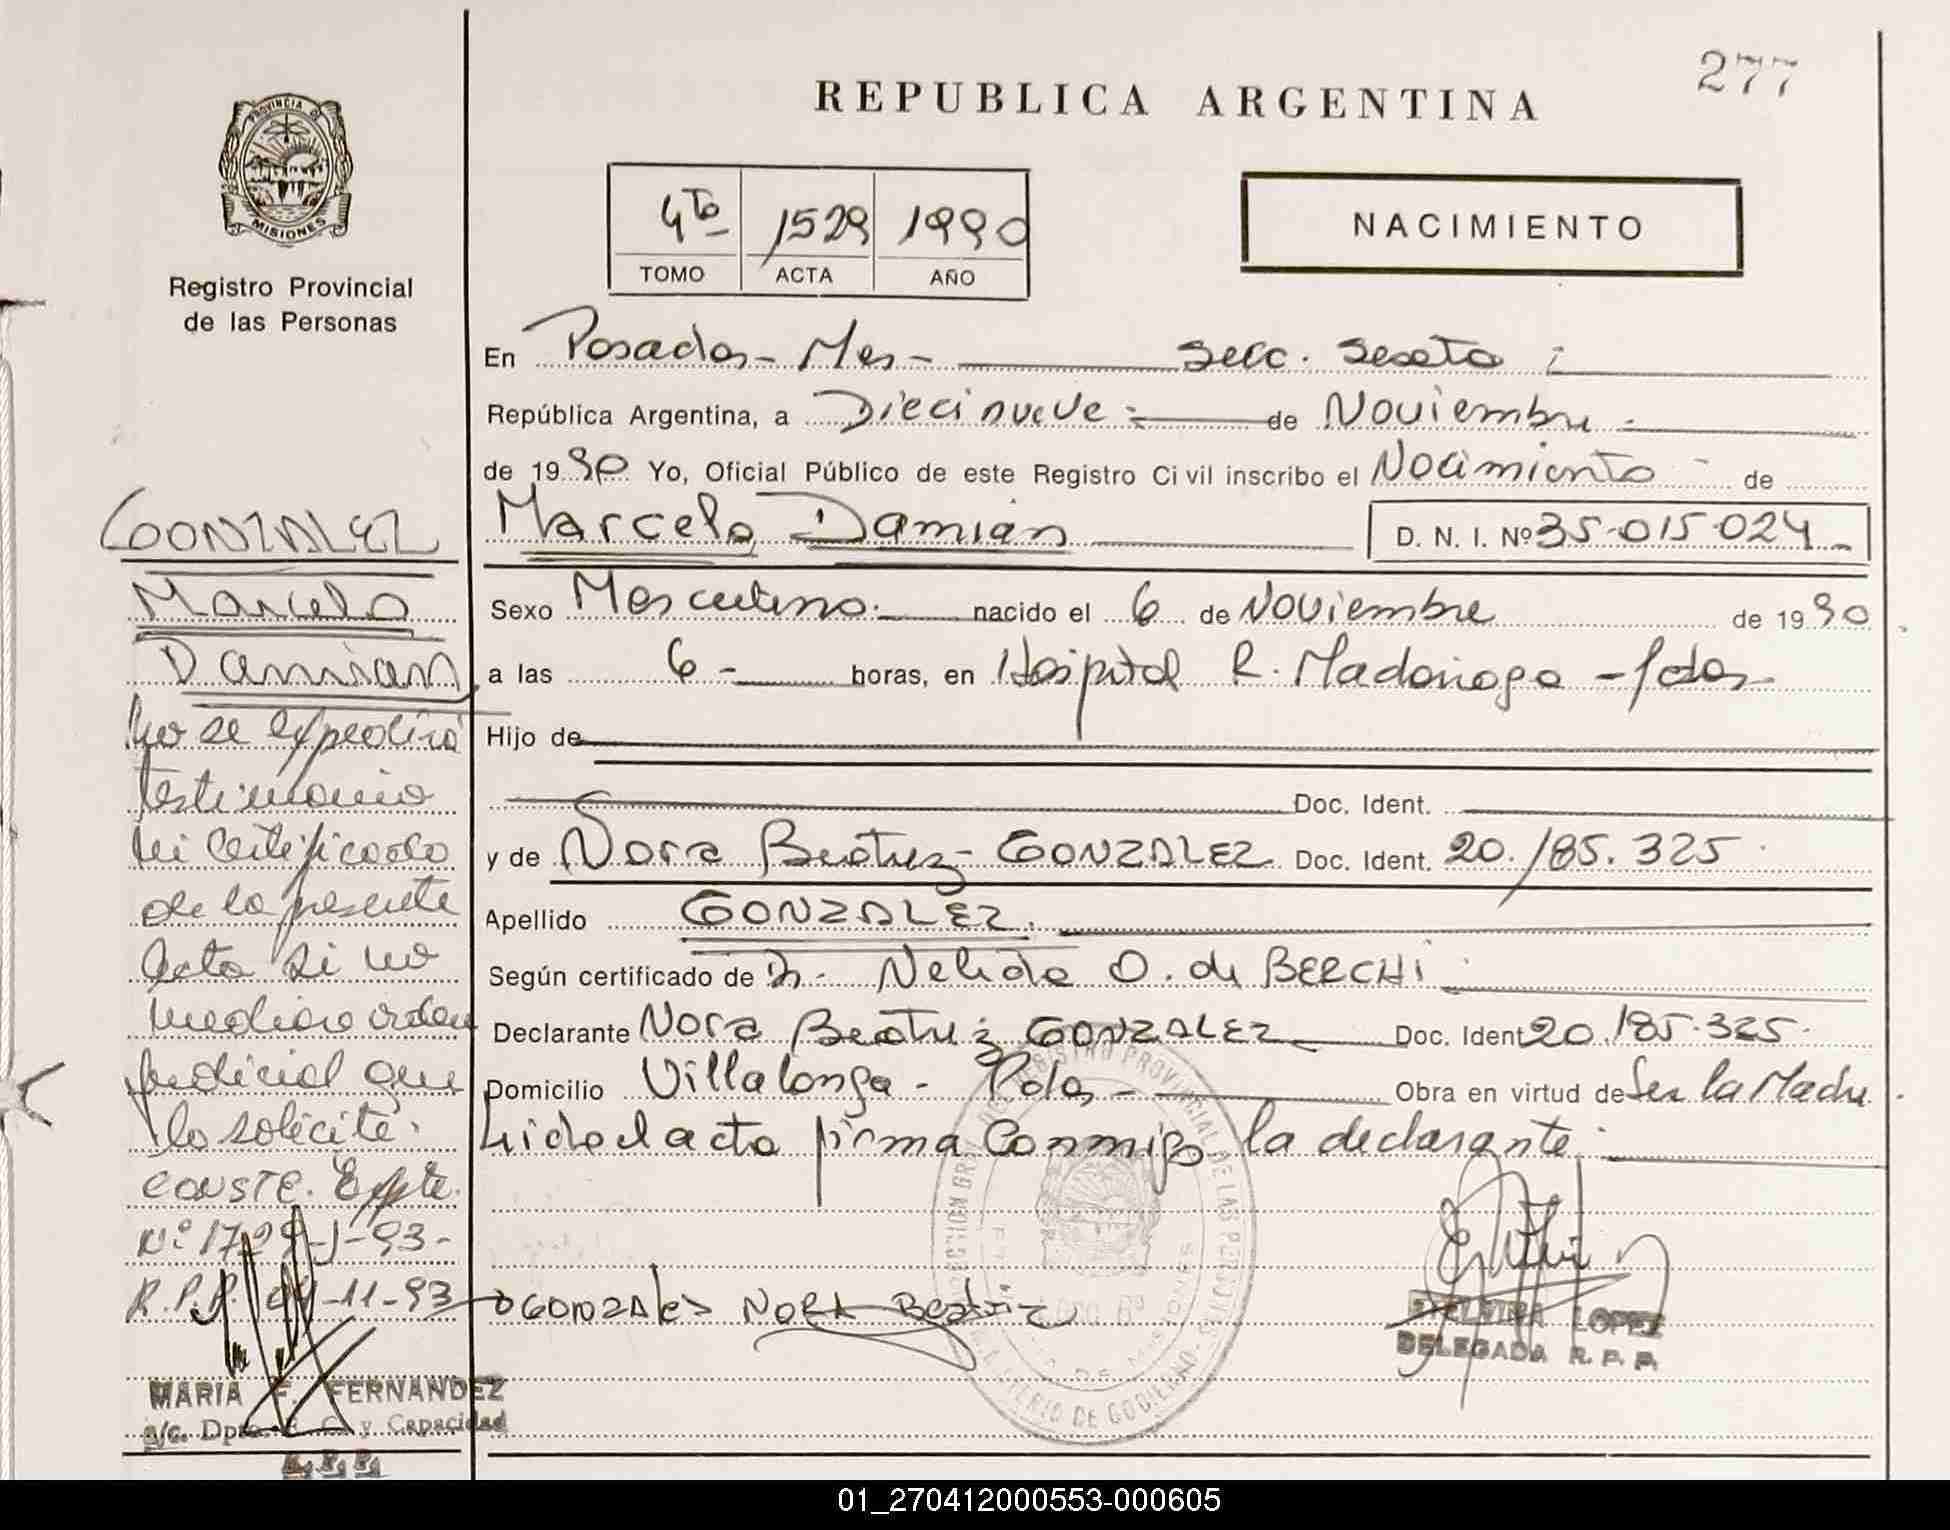 277
REPUBLICA ARGENTINA
PROVINCIA D
MISIONES
Registro Provincial
de las Personas
4to 1529 1990
TOMO ACTA AÑO
NACIMIENTO
En Posadas - Mes - Secc. Sexta
República Argentina, a Diecinueve de Noviembre
de 1990 Yo, Oficial Público de este Registro Civil inscribo el Nacimiento de
Marcelo Damián D. N. I. Nº 35.015.024
Sexo Masculino nacido el 6 de Noviembre de 1990
a las 6 horas, en Hospital R. Madariaga - Pdas
Hijo de
Doc. Ident.
y de Nora Beatriz GONZALEZ Doc. Ident. 20.185.325
Apellido GONZALEZ.
Según certificado de Nelida O. de BERCHi
Declarante Nora Beatriz GONZALEZ Doc. Ident 20.185.325
Domicilio Villalonga - Pdas - Obra en virtud de Ser la Madre
Leido el acta firma Conmigo la declarante
GONZALEZ NORA Beatriz
LOPEZ
DELEGADA R. P. P.
GONZALEZ
Marcelo
Damian
No se expedirá
testimonio
ni certificado
de la presente
acta si no
media orden
judicial que
lo solicite.
CONSTE. Expte.
Nº 1729-J-93-
R.P.P. 04-11-93
MARIA F. FERNANDEZ
a/c. Dpto. y Capacidad
R.P.P.
REGISTRO PROVINCIAL DE LAS PERSONAS
MINISTERIO DE GOBIERNO
01_270412000553-000605